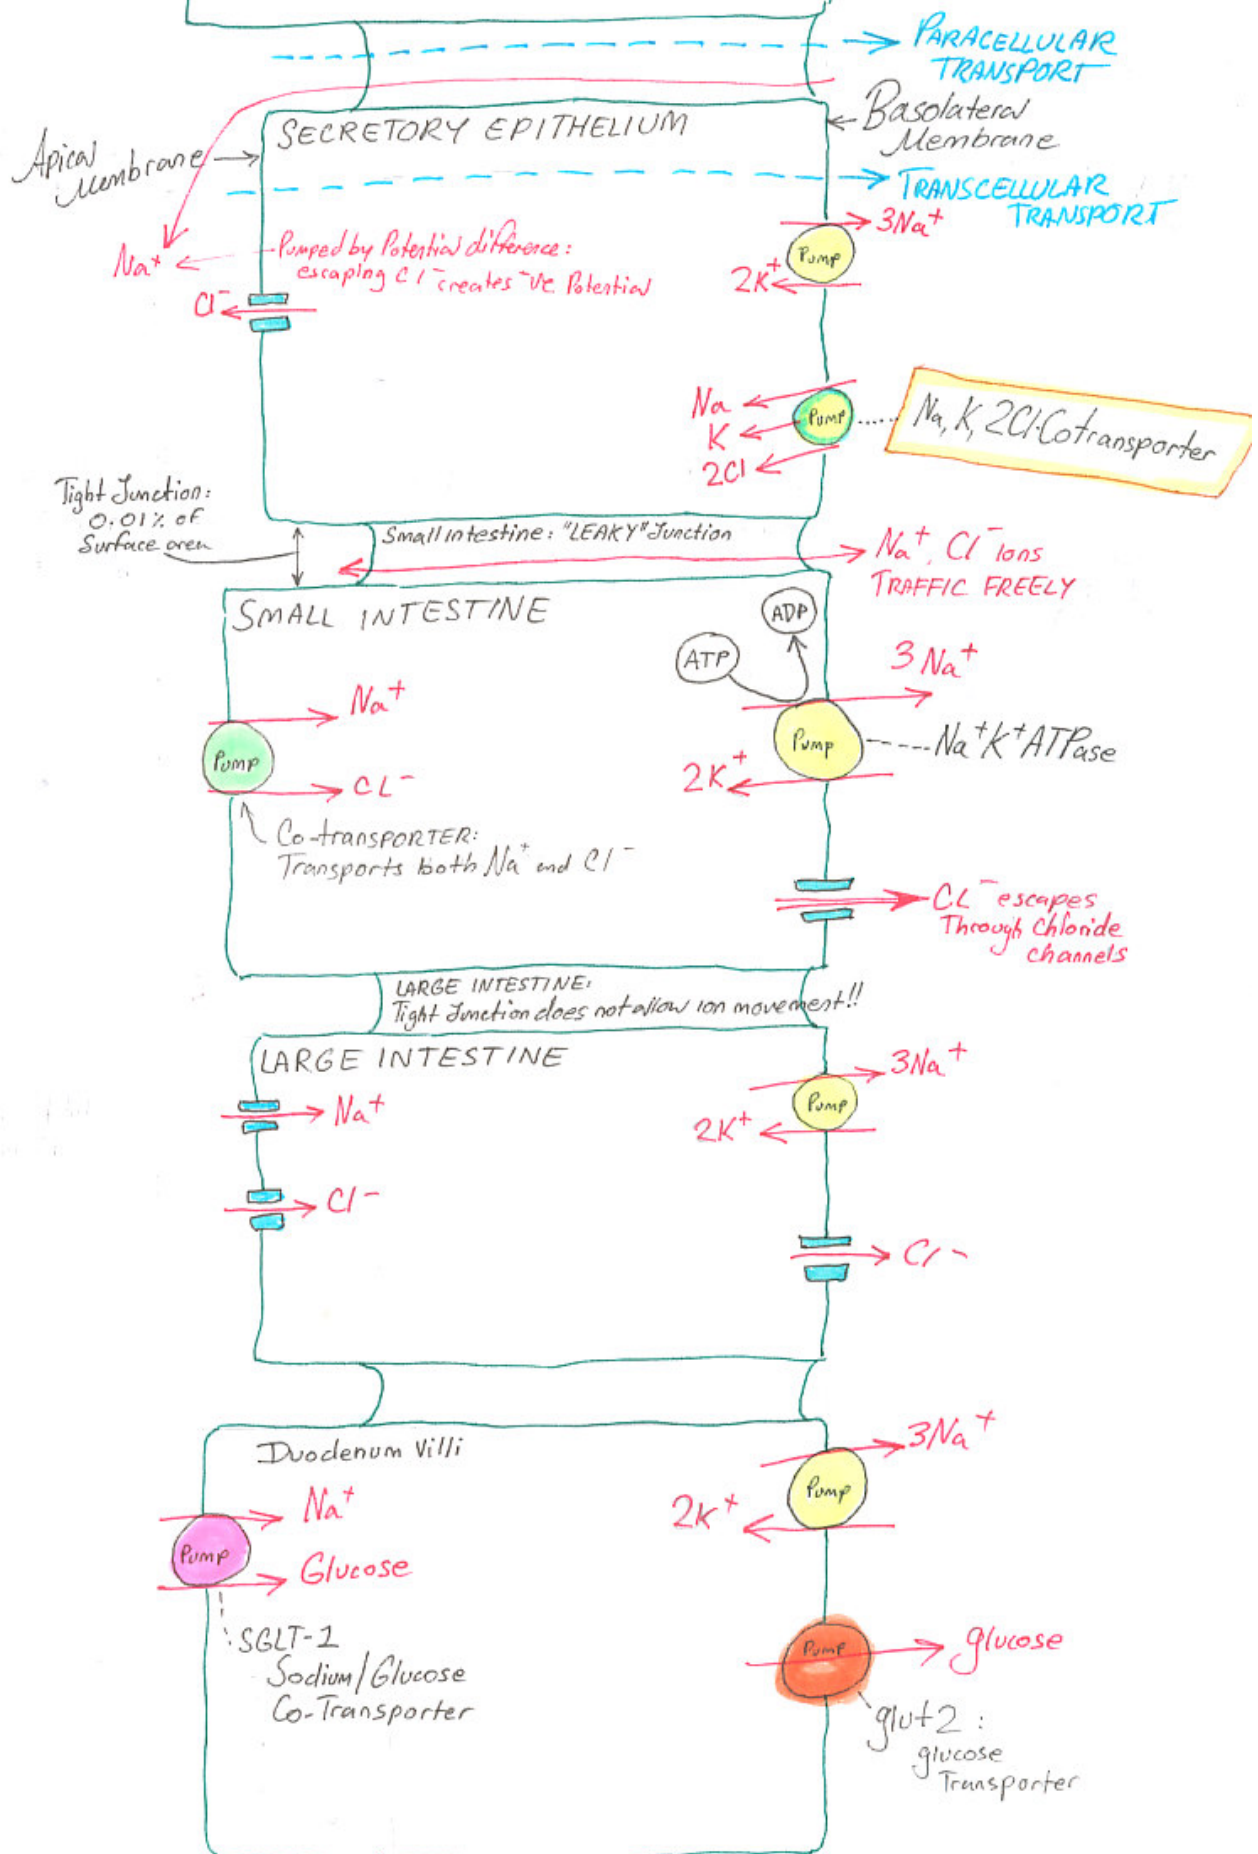 PARACELLULAR
TRANSPORT
SECRETORY EPITHELIUM
Basolateral
Membrane
Apical
Membrane
TRANSCELLULAR
TRANSPORT
3Na+
Pump
2K+
Na+
Pumped by Potential difference:
escaping Cl- creates -ve Potential
Cl-
Na
K
2Cl
Pump
Na, K, 2Cl-Cotransporter
Tight Junction:
0.01% of
Surface area
Small intestine: "LEAKY" Junction
Na+, Cl- ions
TRAFFIC FREELY
SMALL INTESTINE
ADP
ATP
3Na+
Na+
Pump
CL-
Pump
Na+K+ATPase
2K+
Co-transPORTER:
Transports both Na+ and Cl-
CL- escapes
Through Chloride
channels
LARGE INTESTINE:
Tight Junction does not allow ion movement!!
LARGE INTESTINE
3Na+
Na+
Pump
2K+
Cl-
Cl-
Duodenum Villi
3Na+
Na+
Pump
2K+
Pump
Glucose
SGLT-1
Sodium/Glucose
Co-Transporter
Pump
glucose
glut2:
glucose
Transporter